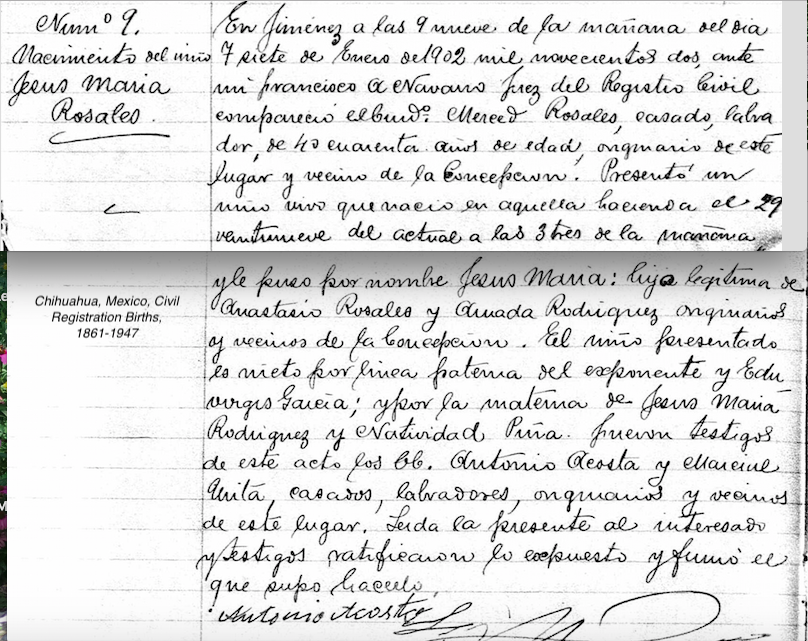 Num° 9.
Nacimiento del niño
Jesus Maria
Rosales.
En Jiménez a las 9 nueve de la mañana del dia
7 siete de Enero de 1902 mil novecientos dos, ante
mi Francisco A Navarro Juez del Registro Civil
comparecio el Ciud°. Merced Rosales, casado, labra
dor, de 40 cuarenta años de edad, originario de este
lugar y vecino de la Concepcion. Presentó un
niño vivo que nacio en aquella hacienda el 29
veintinueve del actual a las 3 tres de la mañana
y le puso por nombre Jesus Maria: hijo legitimo de
Anastasio Rosales y Amada Rodriguez originarios
y vecinos de la Concepcion. El niño presentado
es nieto por linea paterna del exponente y Edu
virgis Garcia; y por la materna de Jesus Maria
Rodriguez y Natividad Piña. Fueron testigos
de este acto los CC. Antonio Acosta y
casados, labradores, originarios y vecinos
de este lugar. Leida la presente al interesado
y testigos ratificaron lo expuesto y firmó el
que supo hacerlo.
Antonio Acosta
Chihuahua, Mexico, Civil
Registration Births,
1861-1947